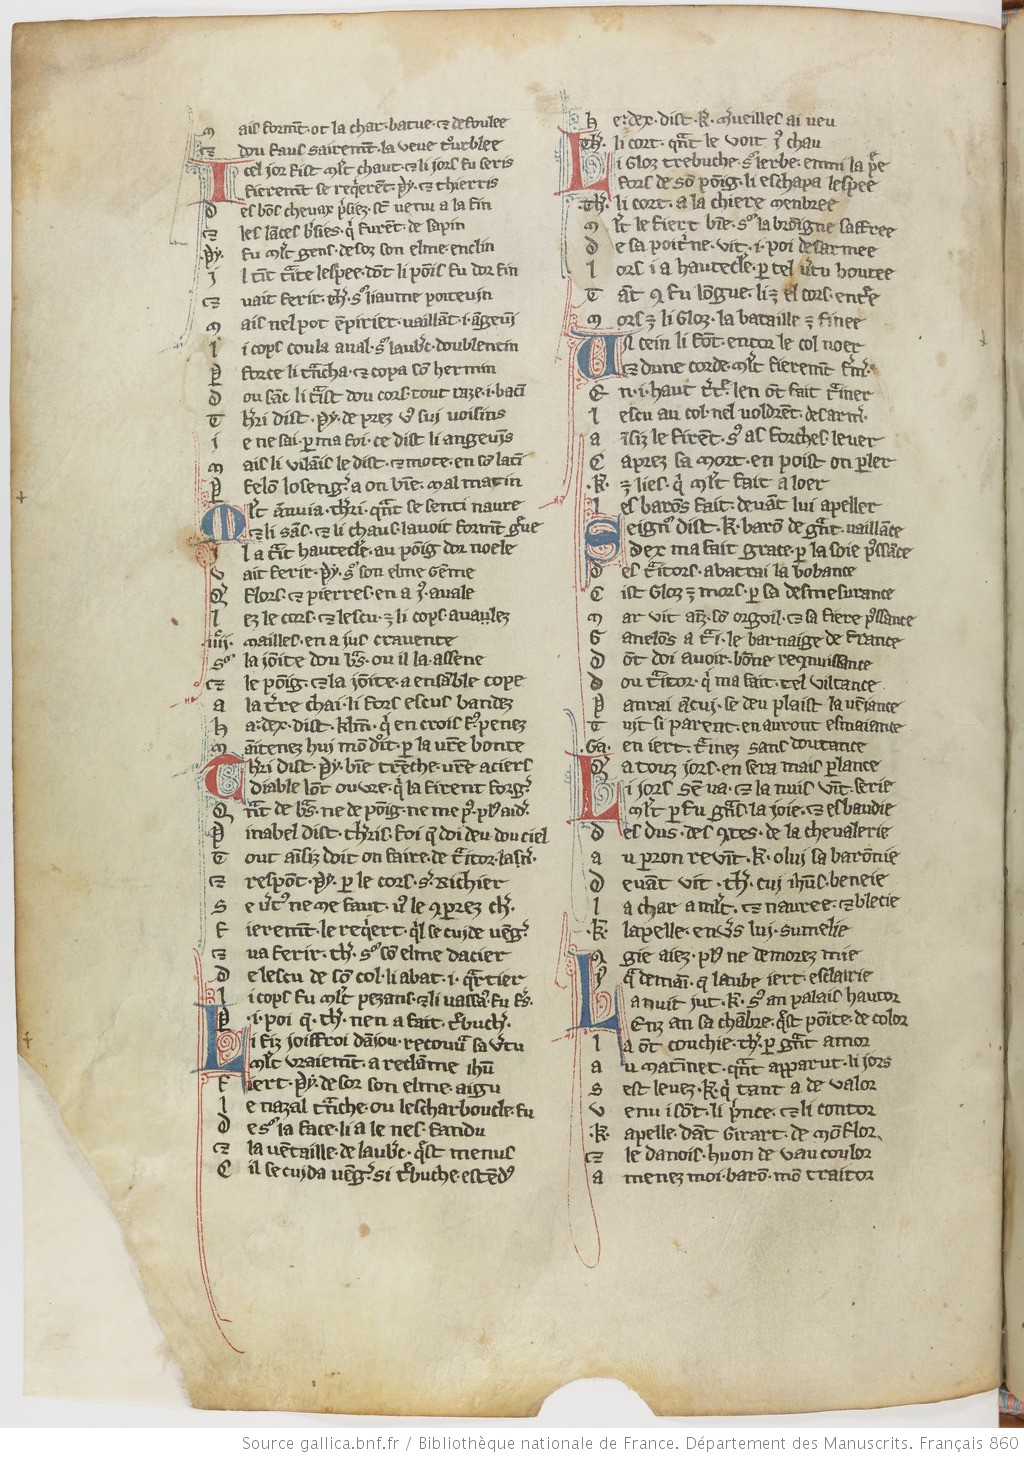 M ais formt ot la char batue ⁊ defoulee
⁊ dou faus sairemt la veue t'oublee
I cel jor fist ml't chaut ⁊ li jors fu seris
fierement se reqierent py ⁊ thierris
D es bõs chevax p'siez st venu a la fin
⁊ les lãces b'sies q'i furẽt de sapin
Py fu ml't gens desoz son elme enclin
I l tint traite lespee dõt li põis fu dor fin
⁊ vait ferir th' s' liaume poitevin
M ais nel pot ẽpirier vaillãt i angeuĩ
L i cops coula aval s' laub'c doublentin
P force li trẽcha ⁊ copa sõ hermin
D ou sãc li traist dou cors tout raze i bacĩ
T hri dist py de prez v' sui voisins
I e ne sai p ma foi ce dist li angeuĩs
M ais li vilãis le dist ⁊ mote en sõ latĩ
P felõ loseng' a on bñe mal matin
M l't anuia thri qãt se senti navre
⁊ li sãs ⁊ li chaus lavoit formt g've
I l a trait hautecle au poig dor noele
V ait ferir py s' son elme geme
Q flors ⁊ pierres en a jus avale
L ez le cors ⁊ lescu ⁊ li cops avalez
iiij mailles en a jus cravente
S' la jõite dou bs ou il la assene
⁊ le poig ⁊ la jõite a ensãble cope
A la t're chai li fors escus bandez
H a dex dist klm q en crois fu penez
M ãitenez hui mõ doit p la vre bonte
T hri dist py bñe trẽche vre aciers
Diable lõt ouvre q la firent forg'
Q nãt de bs ne de poig ne me p' pl' aid'
P inabel dist thris foi q doi deu dou ciel
T out aĩsiz doit on faire de traitor las
⁊ respõt py p le cors s' richier
S e v'tu ne me faut v' le 9prez ch'
F ierement le reqiert q'l se cuide veng'
⁊ va ferir th' s' sõ elme dacier
D e lescu de sõ col li abat i qrtier
L i cops fu ml't pezans ⁊ li vassa fu f's
P i poi q th' nen a fait t'buch'
L i fiz joiffroi dãjou recovra sa v'tu
Ml't vraiemt a reclãme ihũ
F iert py desor son elme agu
L e nazal trẽche ou lescharboucle fu
D es' la face li a le nes fandu
⁊ la vẽtaille de laub'c q'st menus
C il se cuida veng' si t'buche estẽdu
H e dex dist k m'veilles ai veu
Th' li cort qãt le voit j' chau
L i gloz trebuche s' lerbe enmi la pre
Fors de sõ põig li eschapa lespee
Th' li cort a la chiere menbree
M l't le fiert bñe s' la broigne saffree
D e sa poit'ne vit i poi desarmee
L ors i a hautecle p tel v'tu boutee
T ãt 9 fu lõgue li ⁊ el cors entre
M ors ⁊ li gloz la bataille ⁊ finee
A l cein li fõt entor le col noer
⁊ dune corde ml't fierement f'm'
E n i haut t're len õt fait trainer
L escu au col nel voldrẽt desarm'
A isiz le firẽt s' as forches lever
C aprez sa mort en poist on p'ler
K ⁊ lies q' ml't fait a loer
L es barõs fait devãt lui apeller
S eign' dist k barõ de grãt vaillãce
Dex ma fait grace p la soie p'ssãce
D es traitors abatrai la bobance
C ist gloz ⁊ mors p sa desmesurance
M ar vit aiz sõ orgoil ⁊ sa fiere p'ssance
G anelõs a trai le barnaige de france
D õt doi avoir bõne reqnuissance
D ou traitor q' ma fait tel viltance
P anrai ancui se deu plaist la vẽjance
T uit si parent en avront esmaiance
Ga en iert t'inez sans doutance
Q a touz jors en sera mais p'lance
L i jors sẽ va ⁊ la nuis vĩt serie
Ml't p fu gãs la joie ⁊ esbaudie
D es dus des 9tes de la chevalerie
A u perron revĩt k o lui sa barõnie
D evãt vit th' cui ihus beneie
L a char a ml't ⁊ navree ⁊ blecie
K lapelle envs lui sumelie
N gie aiez pl' ne demorez mie
Y qa demai q laube iert esclairie
L a nuit jut k s' an palais hautor
Enz an sa chãbre q'st põite de color
L a õt couchie th' p grãt amor
A u matinet qãt apparut li jors
S est levez k q' tant a de valor
V enu i sõt li p'nce ⁊ li contor
K apelle dãt girart de mõflor
⁊ le danois huon de vaucoulor
A menez moi barõ mõ traitor
Source gallica.bnf.fr / Bibliothèque nationale de France. Département des Manuscrits. Français 860